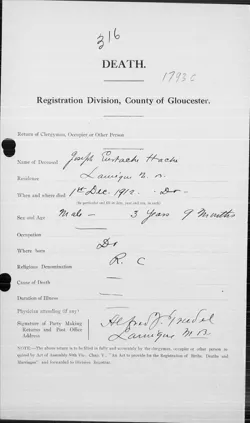 316
DEATH.
1793
Registration Division, County of Gloucester.
Return of Clergyman, Occupier or Other Person
Name of Deceased Joseph Eustache Hache
Residence Lameque N. B.
When and where died 1st Dec. 1912. Do
Sex and Age Male - 3 Years 9 Months
Occupation
Where born Do
Religious Denomination R. C
Cause of Death
Duration of Illness
Physician attending if any
Signature of Party Making Returns and Post Office Address Alfred J.
Lameque N. B.
NOTE.—The above return is to be filled in fully and correctly by the clergyman, occupier or other person required by Act of Assembly 50th Vic., Chap. V., "An Act to provide for the Registration of Births, Deaths and Marriages", and forwarded to Division Registrar.